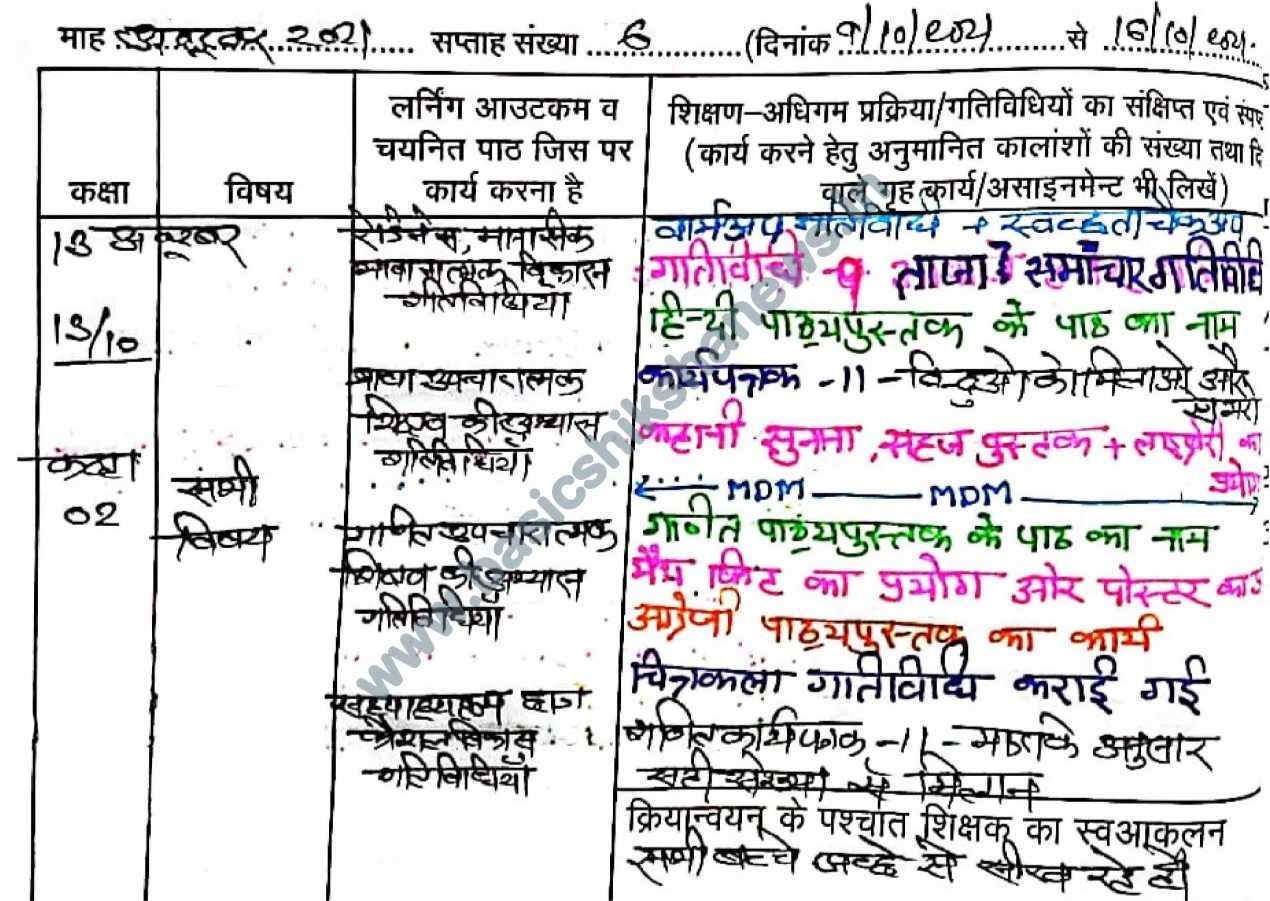 माह अक्टूबर 2021 सप्ताह संख्या 6 (दिनांक 9/10/2021 से 16/10/2021
कक्षा
विषय
लर्निंग आउटकम व
चयनित पाठ जिस पर
कार्य करना है
शिक्षण-अधिगम प्रक्रिया/गतिविधियों का संक्षिप्त एवं स्पष्
(कार्य करने हेतु अनुमानित कालांशों की संख्या तथा दि
वाले गृह कार्य/असाइनमेंट भी लिखें)
13 अक्टूबर
13/10
कक्षा
02
सभी
विषय
रेडिनेस,
विकास
गतिविधियां
शिक्षण की अभ्यास
गतिविधियाँ
गणित उपचारात्मक
शिक्षण की अभ्यास
गतिविधियाँ
कौशल विकास
गतिविधियाँ
वार्मअप गातीविधि + स्वच्छता चैकअप
गातीविधि -9 ताजा समाचार गतिविधि
हिन्दी पाठ्यपुस्तक के पाठ का नाम
कार्यपत्रक -11- बिन्दुओ को मिलाओ और
रंग भरो
कहानी सुनना, सहज पुस्तक + लाइब्रेरी का
प्रयोग
MDM MDM
गाणीत पाठ्यपुस्तक के पाठ का नाम
मैथ किट का प्रयोग और पोस्टर का
अंग्रेजी पाठ्यपुस्तक का कार्य
चित्रकला गातीविधि कराई गई
गणित कार्यपत्रक -11- के अनुसार
सही संख्या से मिलान
क्रियान्वयन के पश्चात शिक्षक का स्वआकलन
सभी बच्चे अच्छे से सीख रहे है
www.basicshikshanews.in